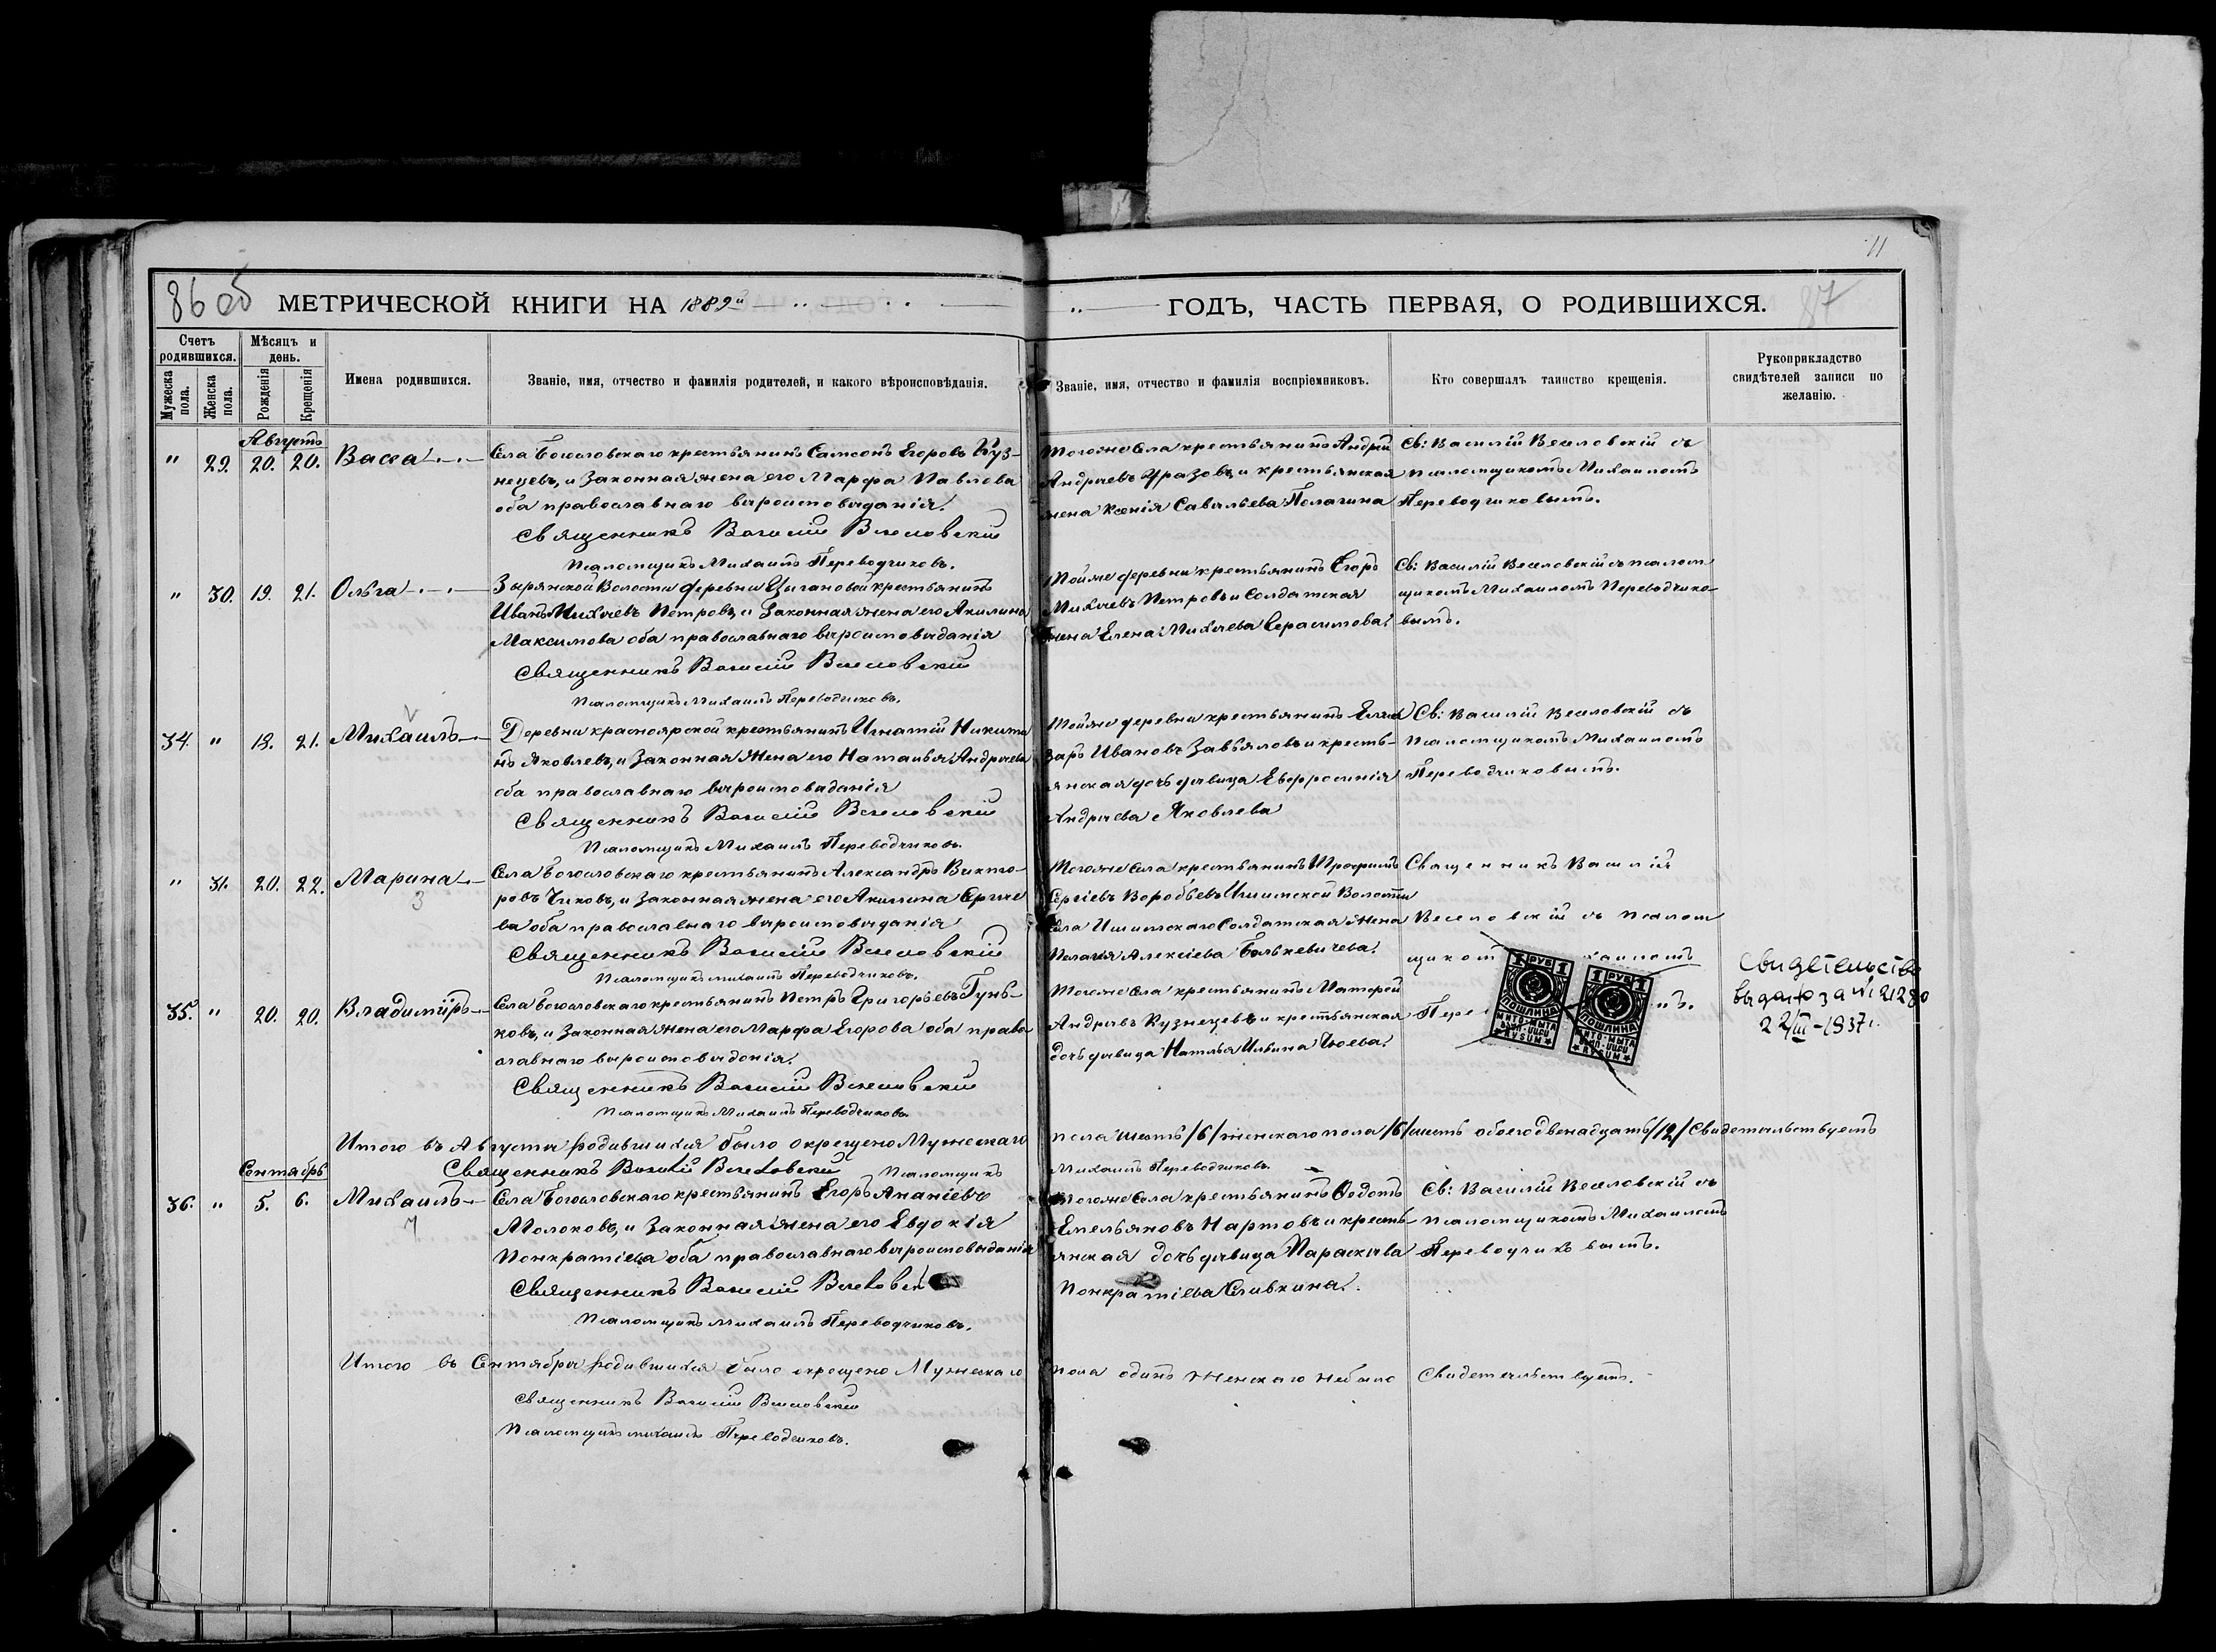 11
86 об МЕТРИЧЕСКОЙ КНИГИ НА 1889й ГОДЪ, ЧАСТЬ ПЕРВАЯ, О РОДИВШИХСЯ. 87
Счетъ родившихся.
Мужеска пола.
Женска пола.
Мѣсяцъ и день.
Рожденія
Крещенія
Имена родившихся.
Званіе, имя, отчество и фамилія родителей, и какого вѣроисповѣданія.
Званіе, имя, отчество и фамилія воспріемниковъ.
Кто совершалъ таинство крещенія.
Рукоприкладство свидѣтелей записи по желанію.
Августъ
" 29. 20. 20. Васса
Села Богословскаго крестьянинъ Самсонъ Егоровъ Куз-
нецевъ, и законная жена его Марфа Павлова
оба православнаго вѣроисповѣданія.
Священникъ Василій Веселовскій
Псаломщикъ Михаилъ Переводчиковъ.
Тогоже села крестьянинъ Андрей
Андреевъ и крестьянская
жена Ксенія Савельева Пелагина
Св: Василій Веселовскій съ
псаломщикомъ Михаиломъ
Переводчиковымъ.
" 30. 19. 21. Ольга
Зырянской Волости деревни Цыгановой крестьянинъ
Иванъ Михеевъ Петровъ, и законная жена его Акилина
Максимова оба православнаго вѣроисповѣданія
Священникъ Василій Веселовскій
Псаломщикъ Михаилъ Переводчиковъ.
Тойже деревни крестьянинъ Егоръ
Михеевъ Петровъ и солдатская
жена Елена Михеева Герасимова.
Св: Василій Веселовскій съ псалом
щикомъ Михаиломъ Переводчико-
вымъ.
34. " 18. 21. Михаилъ
Деревни красноярской крестьянинъ Игнатій Никити
нъ Яковлевъ, и законная жена его Наталья Андреева
оба православнаго вѣроисповѣданія
Священникъ Василій Веселовскій
Псаломщикъ Михаилъ Переводчиковъ.
Тойже деревни крестьянинъ Елеа
заръ Ивановъ Завьяловъ и кресть-
янская дочь дѣвица Евфросинія
Андреева Яковлева
Св: Василій Веселовскій съ
псаломщикомъ Михаиломъ
Переводчиковымъ.
" 31. 20. 22. Марина
3
Села Богословскаго крестьянинъ Александръ Викто-
ровъ Чиковъ, и законная жена его Акилина Сергие
ва оба православнаго вѣроисповѣданія
Священникъ Василій Веселовскій
Псаломщикъ Михаилъ Переводчиковъ.
Тогоже села крестьянинъ Трофимъ
Сергіевъ Воробьевъ Ишимской Волости
села Ишимскаго солдатская жена
Пелагія Алексіева
Священникъ Василій
Веселовскій съ псалом
щиком
35. " 20. 20. Владиміръ
Села богословскаго крестьянинъ Петръ Григорьевъ Гунь-
ковъ, и законная жена его Марфа Егорова оба право
славнаго вѣроисповѣданія.
Священникъ Василій Веселовскій
Псаломщикъ Михаилъ Переводчиковъ
Тогоже села крестьянинъ Матфей
Андреевъ Кузнецевъ и крестьянская
дочь дѣвица Наталья Ильина
Пере ъ.
1 РУБ 1
ПОШЛИНА
МИТО-МЫТА
RYSUM
1 РУБ 1
ПОШЛИНА
МИТО-МЫТА
RYSUM
Свидетельство
выдано за № 21280
22/III-1937г.
Итого въ Августѣ родившихся было окрещено Мужескаго пола шесть /6/ женскаго пола /6/ шесть обоего двенадцать /12/ Свидетельствуетъ
Священникъ Василій Веселовскій Псаломщикъ Михаилъ Переводчиковъ.
Сентябрь
36. " 5. 6. Михаилъ
7
Села Богословскаго крестьянинъ Егоръ Ананіевъ
Молоковъ, и законная жена его Евдокія
Понкратіева оба православнаго вѣроисповѣданія
Священникъ Василій Веселовск
Псаломщикъ Михаилъ Переводчиковъ.
Тогоже села крестьянинъ Ѳедотъ
Емельяновъ Нартовъ и кресть-
янская дочь дѣвица Параскева
Понкратіева Сливкина.
Св: Василій Веселовскій съ
псаломщикомъ Михаиломъ
Переводчиковымъ.
Итого въ Сентябрѣ родившихся было окрещено Мужескаго пола одинъ женскаго небыло Свидетельствуетъ.
Священникъ Василій Веселовскій
Псаломщикъ Михаилъ Переводчиковъ.